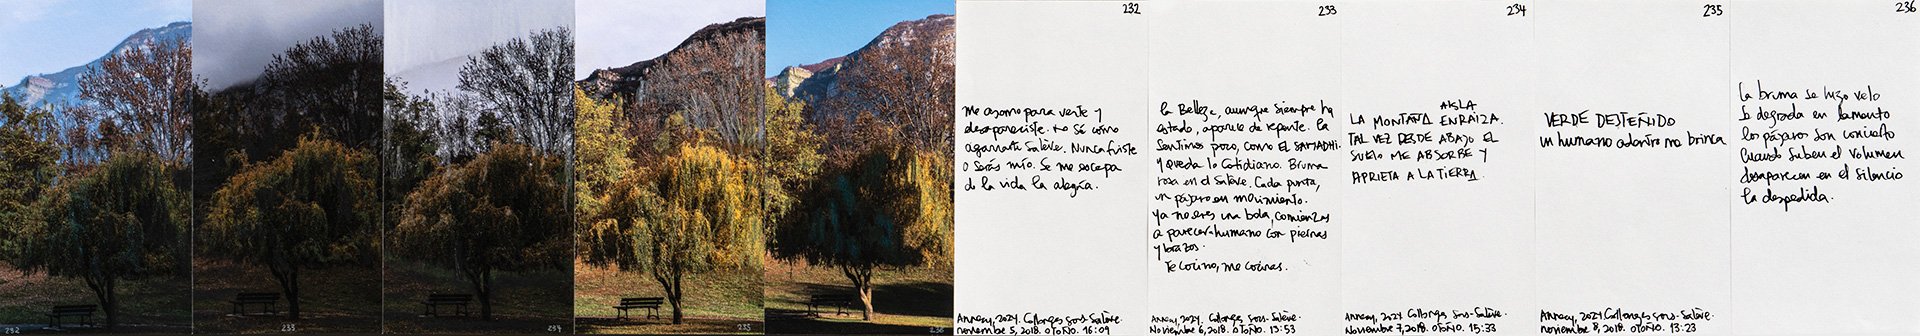 232
233
234
235
236
232
me asomo para verte y
desapareciste. no sé cómo
agarrarte Salève. Nunca fuiste
o serás mío. Se me escapa
de la vida la alegría.
Annecy, 2024. Collonges-sous-Salève.
noviembre 5, 2018. OTOÑO. 16:09
233
la Belleza, aunque siempre ha
estado, aparece de repente. La
sentimos poco, como EL SAMADHI.
y queda lo cotidiano. Bruma
rosa en el Salève. Cada punta,
un pájaro en movimiento.
ya no eres una bola, comienzas
a parecer humano con piernas
y brazos.
Te cocino, me cocinas.
Annecy, 2024. Collonges-sous-Salève.
Noviembre 6, 2018. OTOÑO. 13:53
234
AISLA
LA MONTAÑA ENRAIZA.
TAL VEZ DESDE ABAJO EL
SUELO ME ABSORBE Y
APRIETA A LA TIERRA.
Annecy, 2024 Collonges-sous-Salève.
Noviembre 7, 2018. OTOÑO. 15:33
235
VERDE DESTEÑIDO
un humano adentro no brinca
Annecy, 2024. Collonges-sous-Salève.
noviembre 8, 2018. OTOÑO. 13:23
236
la bruma se hizo velo
la degrada en lamento
los pájaros son concierto
cuando suben el volumen
desaparecen en el silencio
la despedida.